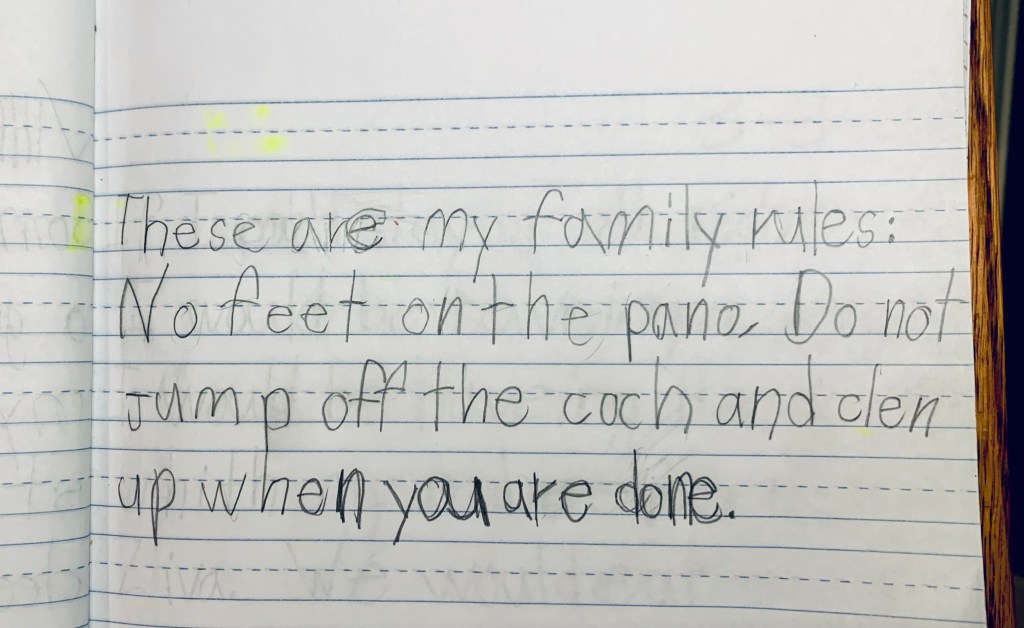 These are my family rules:
No feet on the pano. Do not
Jump off the coch and clen
up when you are done.